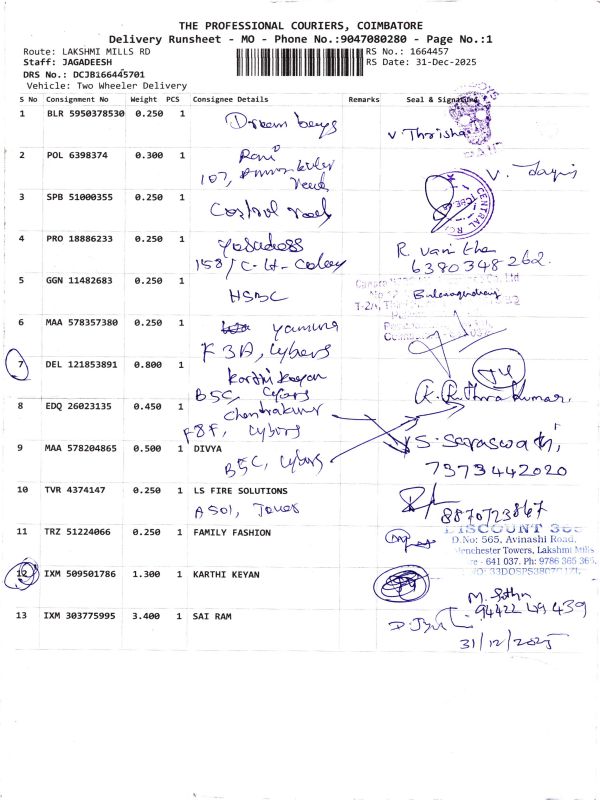 THE PROFESSIONAL COURIERS, COIMBATORE
Delivery Runsheet - MO - Phone No.:9047080280 - Page No.:1
Route: LAKSHMI MILLS RD
RS No.: 1664457
Staff: JAGADEESH
RS Date: 31-Dec-2025
DRS No.: DCJB166445701
Vehicle: Two Wheeler Delivery
S No Consignment No Weight PCS Consignee Details Remarks Seal & Signature
1 BLR 5950378530 0.250 1 Dream bays
V Thrisha
2 POL 6398374 0.300 1 Rani
107,
V.
3 SPB 51000355 0.250 1 Control
CENTRAL
4 PRO 18886233 0.250 1
158/C-H-Colony
R. Vanitha
6380348262.
5 GGN 11482683 0.250 1 HSBC
6 MAA 578357380 0.250 1 Yamuna
F 3A, Cybers
7 DEL 121853891 0.800 1 Karthi Keyan
B5C, Cybers
K. Muthra Kumar.
8 EDQ 26023135 0.450 1 Chandrakumar
F8F, Cybers
S. Saraswathi
9 MAA 578204865 0.500 1 DIVYA
B5C, Cybers
7373442020
10 TVR 4374147 0.250 1 LS FIRE SOLUTIONS
A501, Tower
8870723867
11 TRZ 51224066 0.250 1 FAMILY FASHION
DISCOUNT 365
D.No: 565, Avinashi Road,
Lakshmi Mills
- 641 037. Ph: 9786 365 365,
12 IXM 509501786 1.300 1 KARTHI KEYAN
13 IXM 303775995 3.400 1 SAI RAM
31/12/2025